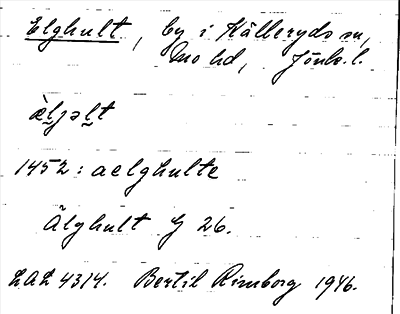 Elghult, by i Källeryds sn,
Mo hd, Jönk. l.
æ̀ljəlt
1452: aelghulte
Älghult J 26.
LAL 4314. Bertil Rimborg 1946.